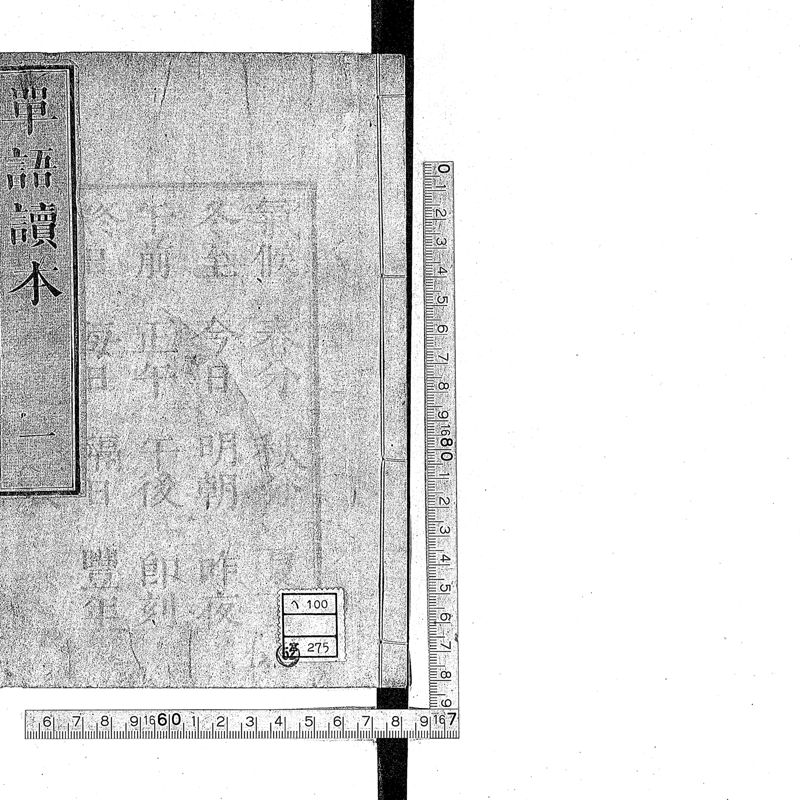 氣候 春分 秋分 夏
冬至 今日 明朝 昨夜
午前 正午 午後 即刻
終日 每日 隔日 豐年
單語讀本 一
100
275
0 1 2 3 4 5 6 7 8 9 1680 1 2 3 4 5 6 7 8 9
6 7 8 9 1660 1 2 3 4 5 6 7 8 9 167